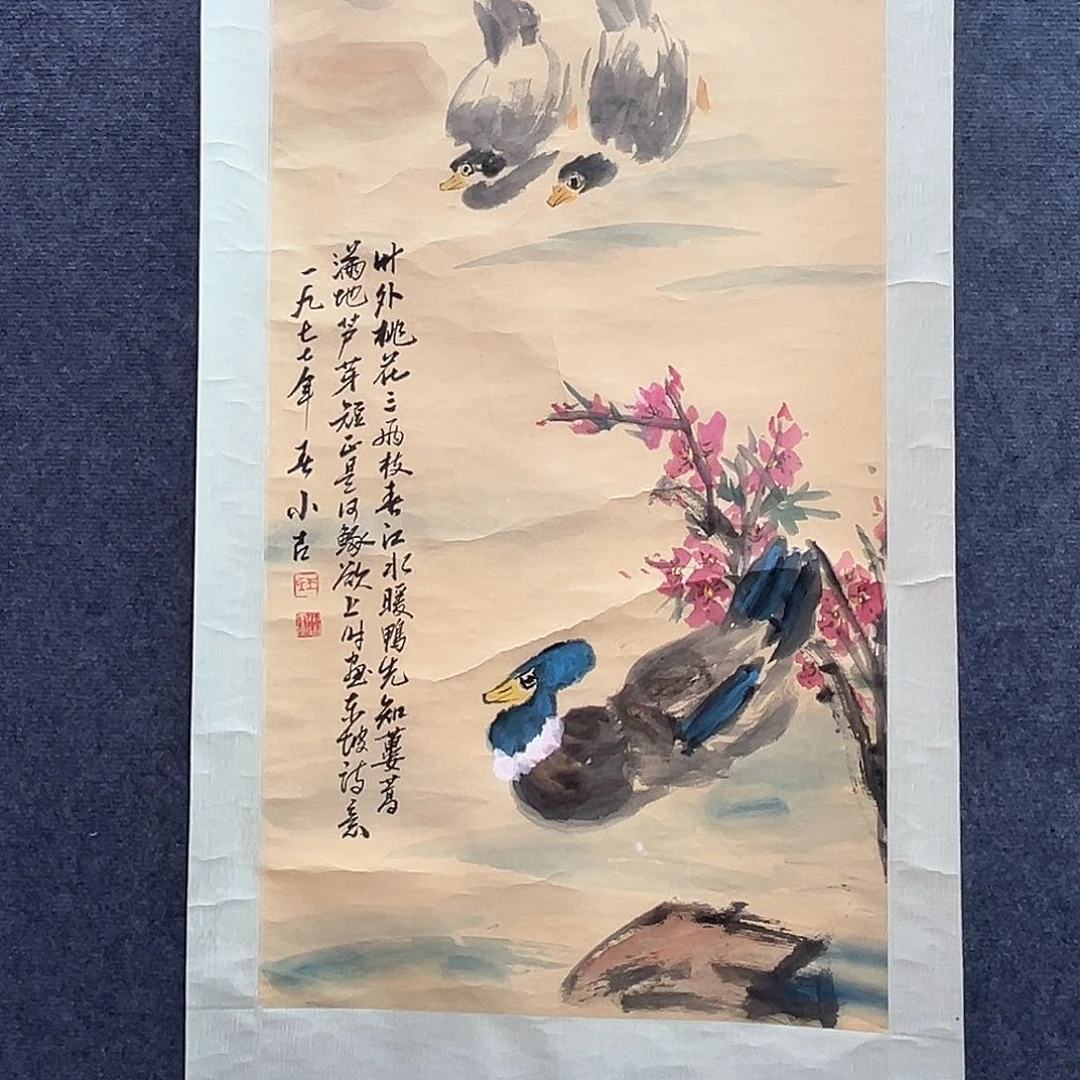 竹外桃花三两枝春江水暖鸭先知蒌蒿
满地芦芽短正是河豚欲上时画东坡诗意
一九七七年春小古